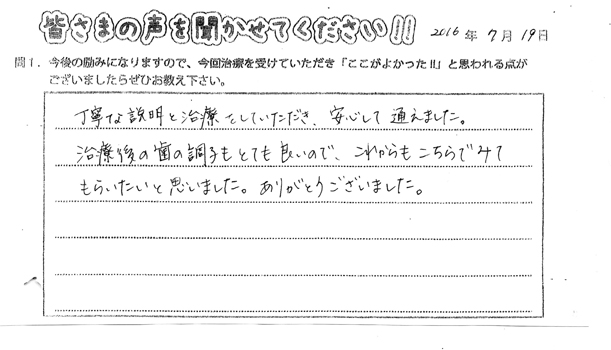 皆さまの声を聞かせてください!! 2016年7月19日
問1．今後の励みになりますので、今回治療を受けていただき「ここがよかった!!」と思われる点が
ございましたらぜひお教え下さい。
丁寧な説明と治療をしていただき、安心して通えました。
治療後の歯の調子もとても良いので、これからもこちらでみて
もらいたいと思いました。ありがとうございました。